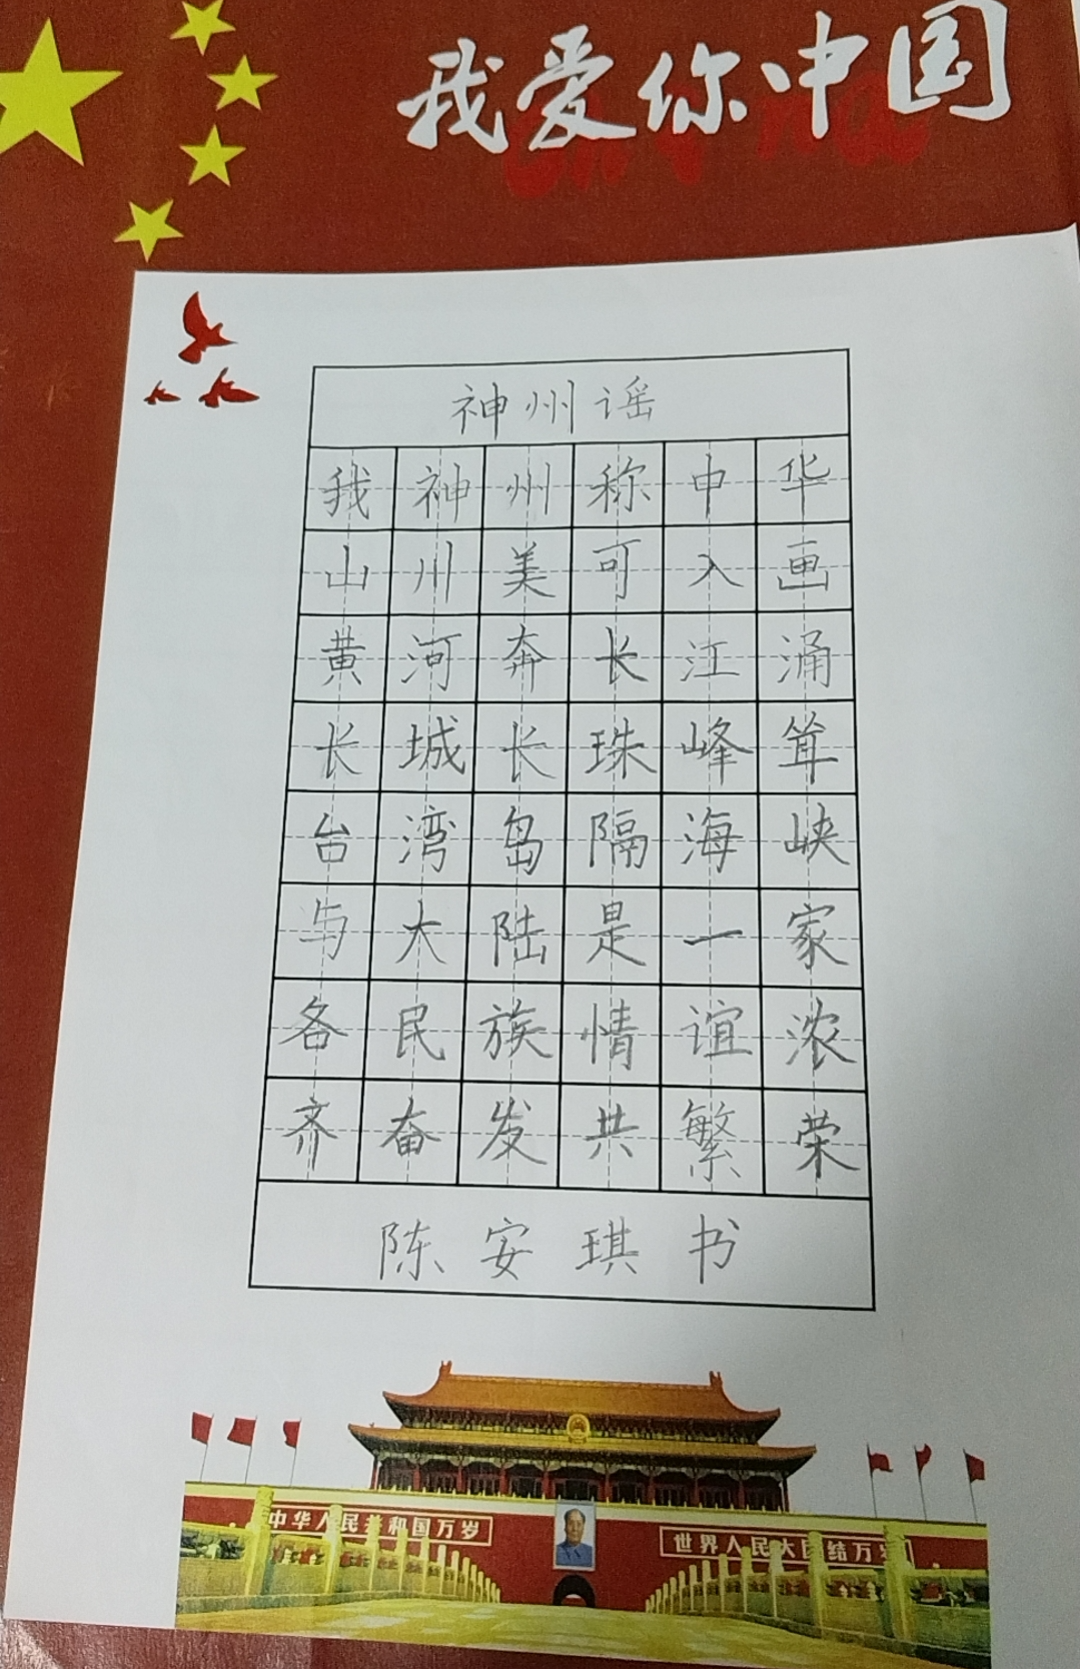 我爱你中国
China
神州谣
我神州称中华
山川美可入画
黄河奔长江涌
长城长珠峰耸
台湾岛隔海峡
与大陆是一家
各民族情谊浓
齐奋发共繁荣
陈安琪书
中华人民共和国万岁
世界人民大团结万岁